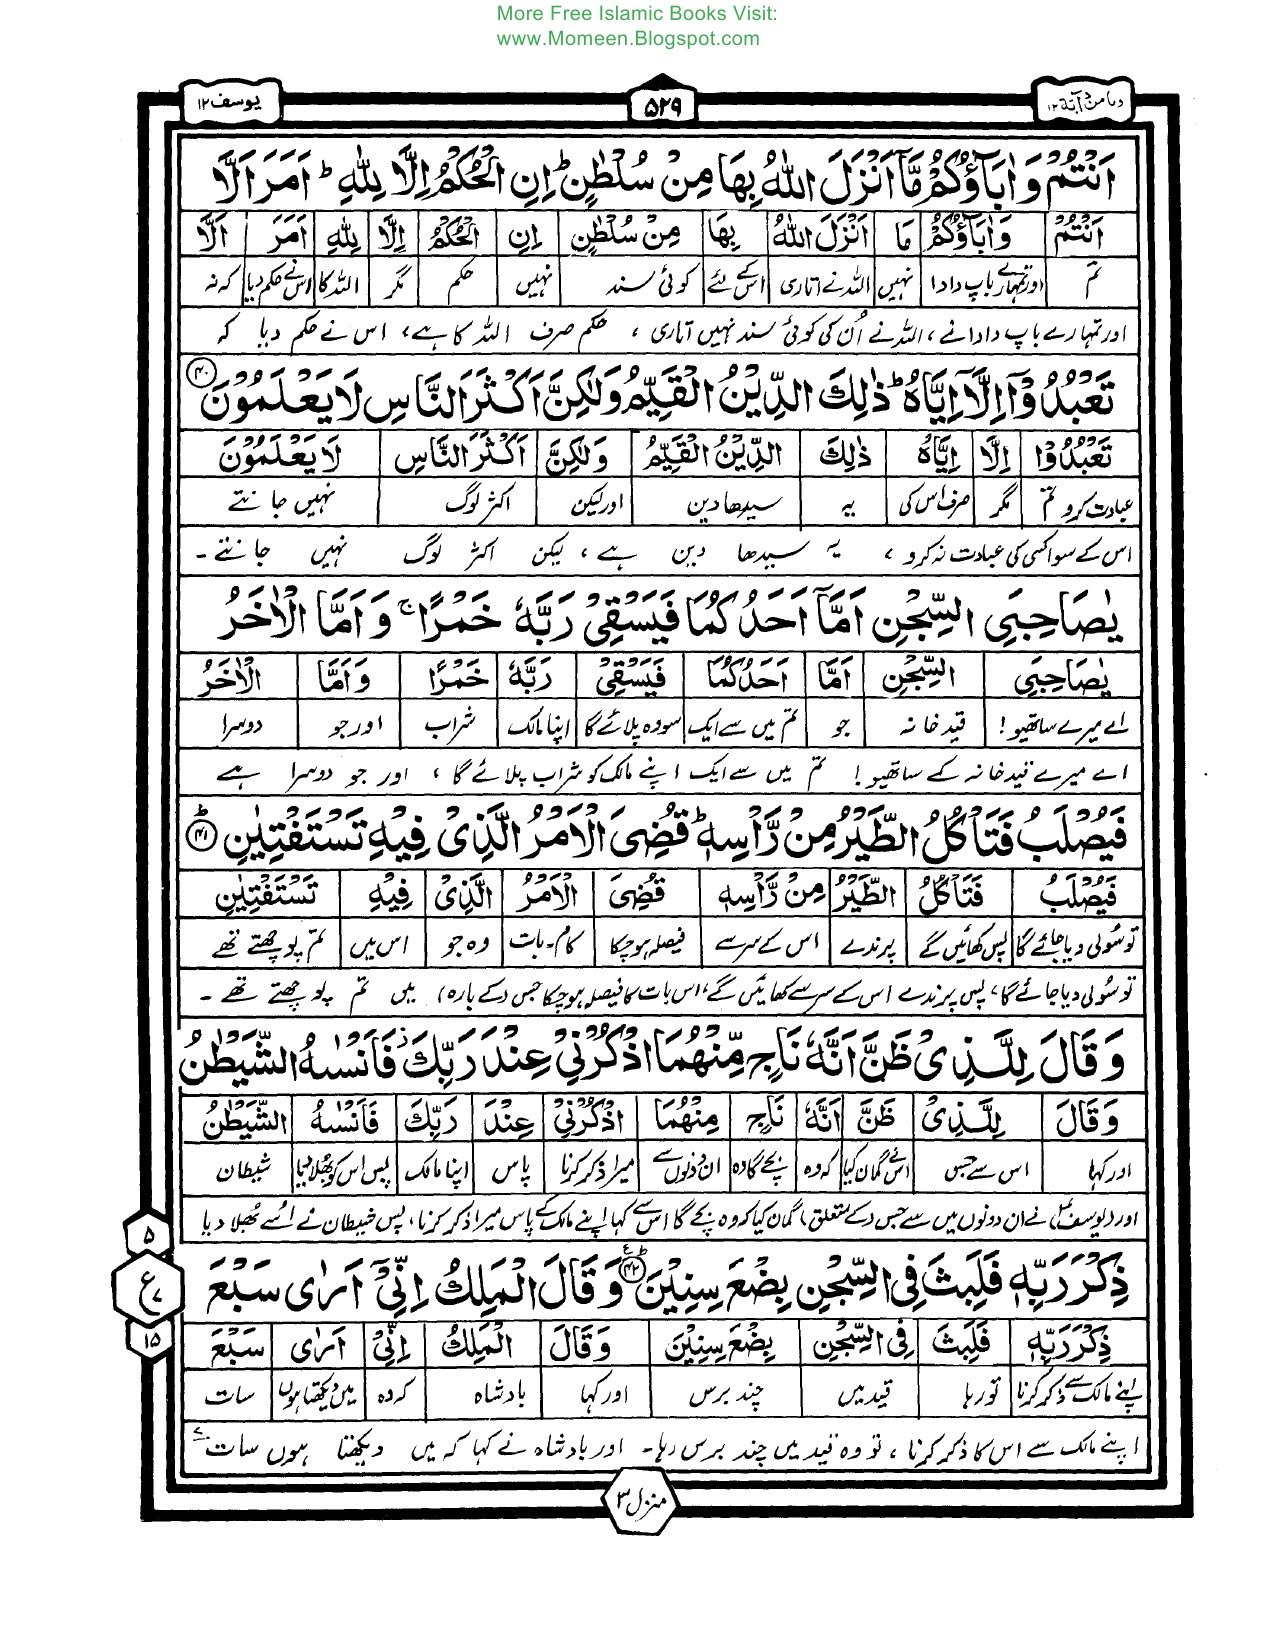 More Free Islamic Books Visit:
www.Momeen.Blogspot.com
ومامن دآبة ۱۲
۵۲۹
یوسف ۱۲
اَنْتُمْ وَاٰبَآؤُكُمْ مَّآ اَنْزَلَ اللّٰهُ بِهَا مِنْ سُلْطٰنٍ ؕ اِنِ الْحُكْمُ اِلَّا لِلّٰهِ ؕ اَمَرَ اَلَّا
اَنْتُمْ وَاٰبَآؤُكُمْ مَا اَنْزَلَ اللّٰهُ بِهَا مِنْ سُلْطٰنٍ اِنِ الْحُكْمُ اِلَّا لِلّٰهِ اَمَرَ اَلَّا
تم اور تمہارے باپ دادا نہیں اللہ نے اتاری اس کے لئے کوئی سند نہیں حکم مگر اللہ کا اس نے حکم دیا کہ نہ
اور تمہارے باپ دادا نے، اللہ نے اُن کی کوئی سند نہیں اتاری، حکم صرف اللہ کا ہے، اس نے حکم دیا کہ
تَعْبُدُوْٓا اِلَّآ اِیَّاهُ ؕ ذٰلِكَ الدِّیْنُ الْقَیِّمُ وَلٰكِنَّ اَكْثَرَ النَّاسِ لَا یَعْلَمُوْنَ ۴۰
تَعْبُدُوْا اِلَّا اِیَّاهُ ذٰلِكَ الدِّیْنُ الْقَیِّمُ وَلٰكِنَّ اَكْثَرَ النَّاسِ لَا یَعْلَمُوْنَ
عبادت کرو تم مگر صرف اس کی یہ سیدھا دین اور لیکن اکثر لوگ نہیں جانتے
اس کے سوا کسی کی عبادت نہ کرو، یہ سیدھا دین ہے، لیکن اکثر لوگ نہیں جانتے۔
یٰصَاحِبَیِ السِّجْنِ اَمَّآ اَحَدُكُمَا فَیَسْقِیْ رَبَّهٗ خَمْرًا ۚ وَاَمَّا الْاٰخَرُ
یٰصَاحِبَیِ السِّجْنِ اَمَّا اَحَدُكُمَا فَیَسْقِیْ رَبَّهٗ خَمْرًا وَاَمَّا الْاٰخَرُ
اے میرے ساتھیو! قید خانہ جو تم میں سے ایک سو وہ پلائے گا اپنا مالک شراب اور جو دوسرا
اے میرے قید خانہ کے ساتھیو! تم میں سے ایک اپنے مالک کو شراب پلائے گا، اور جو دوسرا ہے
فَیُصْلَبُ فَتَاْكُلُ الطَّیْرُ مِنْ رَّاْسِهٖ ؕ قُضِیَ الْاَمْرُ الَّذِیْ فِیْهِ تَسْتَفْتِیٰنِ ؕ ۴۱
فَیُصْلَبُ فَتَاْكُلُ الطَّیْرُ مِنْ رَّاْسِهٖ قُضِیَ الْاَمْرُ الَّذِیْ فِیْهِ تَسْتَفْتِیٰنِ
تو سُولی دیا جائے گا پس کھائیں گے پرندے اس کے سر سے فیصلہ ہو چکا کام۔بات وہ جو اس میں تم پوچھتے تھے
تو سُولی دیا جائے گا، پس پرندے اس کے سر سے کھائیں گے، اس بات کا فیصلہ ہو چکا جس (کے بارہ) میں تم پوچھتے تھے۔
وَقَالَ لِلَّذِیْ ظَنَّ اَنَّهٗ نَاجٍ مِّنْهُمَا اذْكُرْنِیْ عِنْدَ رَبِّكَ ؗ فَاَنْسٰىهُ الشَّیْطٰنُ
وَقَالَ لِلَّذِیْ ظَنَّ اَنَّهٗ نَاجٍ مِنْهُمَا اذْكُرْنِیْ عِنْدَ رَبِّكَ فَاَنْسٰىهُ الشَّیْطٰنُ
اور کہا اس سے جس اس نے گمان کیا کہ وہ بچے گا وہ ان دونوں سے میرا ذکر کرنا پاس اپنا مالک پس اس کو بھلا دیا شیطان
اور (یوسفؑ) نے ان دونوں میں سے جس (کے متعلق) گمان کیا کہ وہ بچے گا اس سے کہا اپنے مالک کے پاس میرا ذکر کرنا، پس شیطان نے اُسے بُھلا دیا
ذِكْرَ رَبِّهٖ فَلَبِثَ فِی السِّجْنِ بِضْعَ سِنِیْنَ ؕ ۴۲ وَقَالَ الْمَلِكُ اِنِّیْٓ اَرٰی سَبْعَ
ذِكْرَ رَبِّهٖ فَلَبِثَ فِی السِّجْنِ بِضْعَ سِنِیْنَ وَقَالَ الْمَلِكُ اِنِّیْٓ اَرٰی سَبْعَ
اپنے مالک سے ذکر کرنا تو رہا قید میں چند برس اور کہا بادشاہ کہ وہ میں دیکھتا ہوں سات
اپنے مالک سے اس کا ذکر کرنا، تو وہ قید میں چند برس رہا۔ اور بادشاہ نے کہا کہ میں دیکھتا ہوں سات
۵
ع ۷
۱۵
منزل ۳